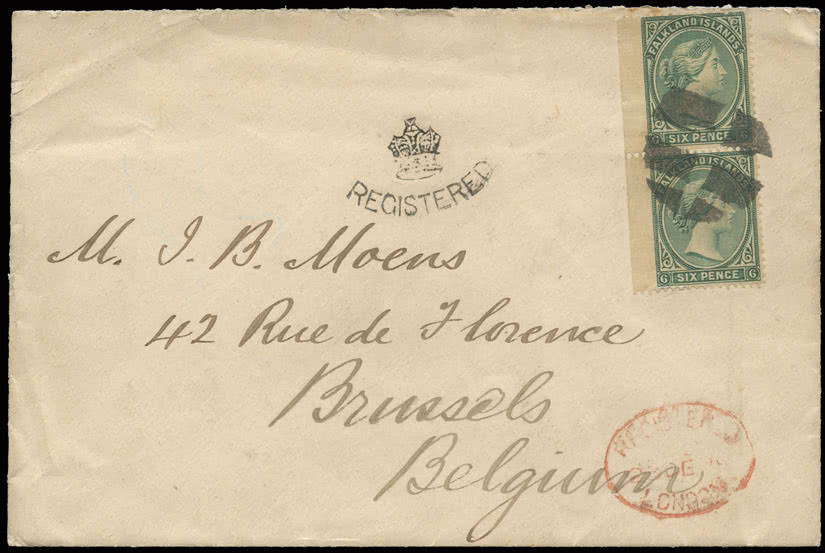 FALKLAND ISLANDS
6 SIX PENCE 6
FALKLAND ISLANDS
6 SIX PENCE 6
REGISTERED
M. J. B. Moens
42 Rue de Florence
Brussels
Belgium
REGISTERED
DE
LONDON